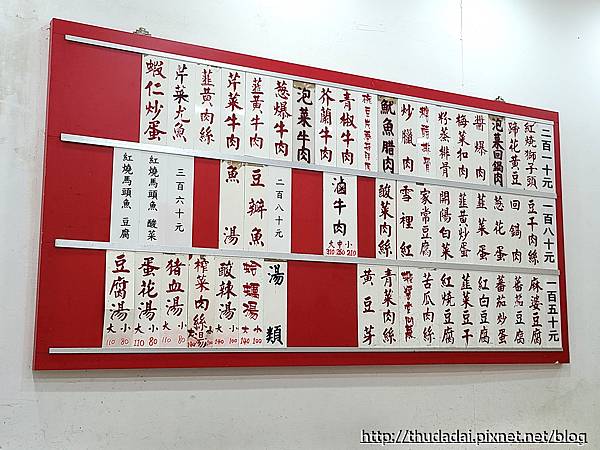 二百一十元
紅燒獅子頭
蹄花黃豆
泡菜回鍋肉
醬爆肉
梅菜扣肉
粉蒸排骨
炒臘肉
魷魚腊肉
青椒牛肉
芥蘭牛肉
泡菜牛肉
葱爆牛肉
韮黃牛肉
芹菜牛肉
韮黃肉絲
芹菜尤魚
蝦仁炒蛋
一百八十元
豆干肉絲
回鍋肉
葱花蛋
韮菜蛋
韮黃炒蛋
開陽白菜
家常豆腐
雪裡紅
酸菜肉絲
滷牛肉
大 中 小
310 260 210
二百八十元
豆瓣魚
魚湯
三百六十元
紅燒馬頭魚 酸菜
紅燒馬頭魚 豆腐
一百五十元
麻婆豆腐
蕃茄豆腐
蕃茄炒蛋
紅白豆腐
韮菜豆干
紅燒豆腐
苦瓜肉絲
青菜肉絲
黃豆芽
湯類
酸辣湯
大 小
140 100
榨菜肉絲湯
豬血湯
大 小
110 80
蛋花湯
大 小
110 80
豆腐湯
大 小
110 80
http://thudadai.pixnet.net/blog